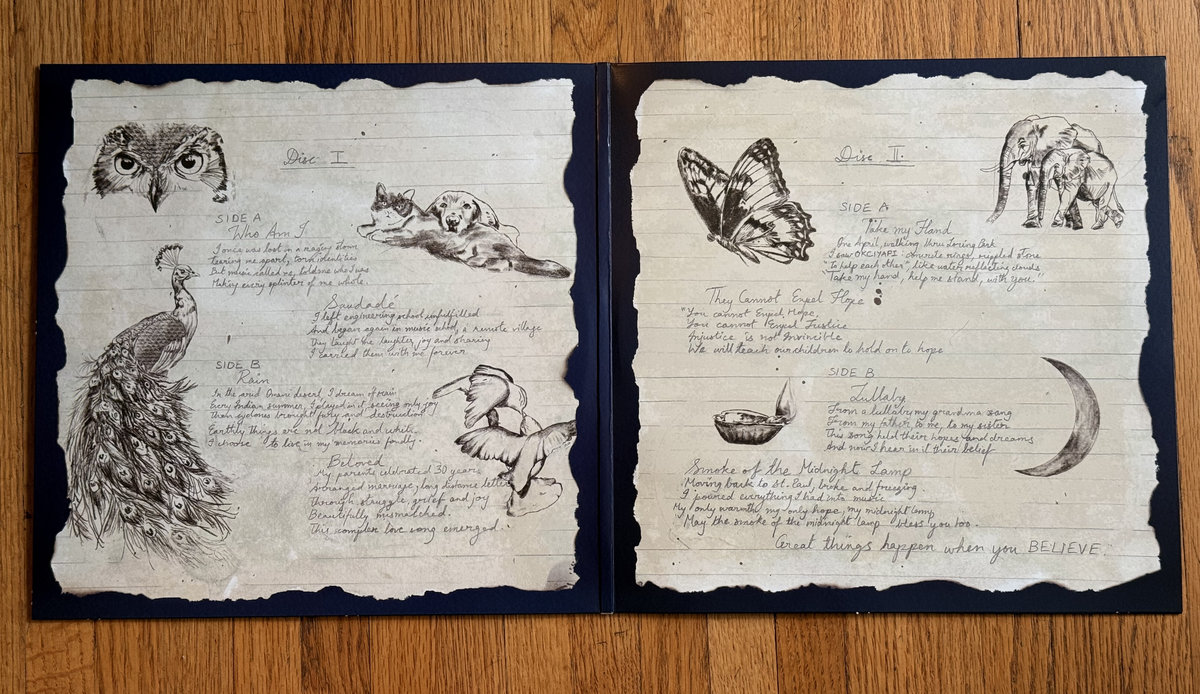 Disc I
SIDE A
Who Am I
I once was lost in a raging storm
Tearing me apart, torn identities
But music called me, told me who I was
Making every splinter of me whole.
Saudadé
I left engineering school unfulfilled
And began again in music school, a remote village
They taught me laughter, joy and sharing
I carried them with me forever
SIDE B
Rain
In the arid Omani desert, I dream of rain
Every Indian summer, I played in it seeing only joy
Then cyclones brought fury and destruction
Earthly things are not black and white
I choose to live in my memories fondly.
Beloved
My parents celebrated 30 years
Arranged marriage, long distance letters
Through struggle, grief and joy
Beautifully mismatched.
This complex love song emerged.
Disc II.
SIDE A
Take my Hand
One April, walking thru Loring Park
I saw OKCIYAPI - concrete rings, rippled stone
"To help each other" like water reflecting clouds
"Take my hand, help me stand, with you."
They Cannot Expel Hope
"You cannot Expel Hope,
You cannot Expel Justice
Injustice is not Invincible
We will teach our children to hold on to hope
SIDE B
Lullaby
From a lullaby my grandma sang
From my father to me, to my sister
This song held their hopes and dreams
And now I hear in it their belief
Smoke of the Midnight Lamp
Moving back to St. Paul, broke and freezing.
I poured everything I had into music
My only warmth, my only hope, my midnight lamp
May the smoke of the midnight lamp bless you too.
Great things happen when you BELIEVE.